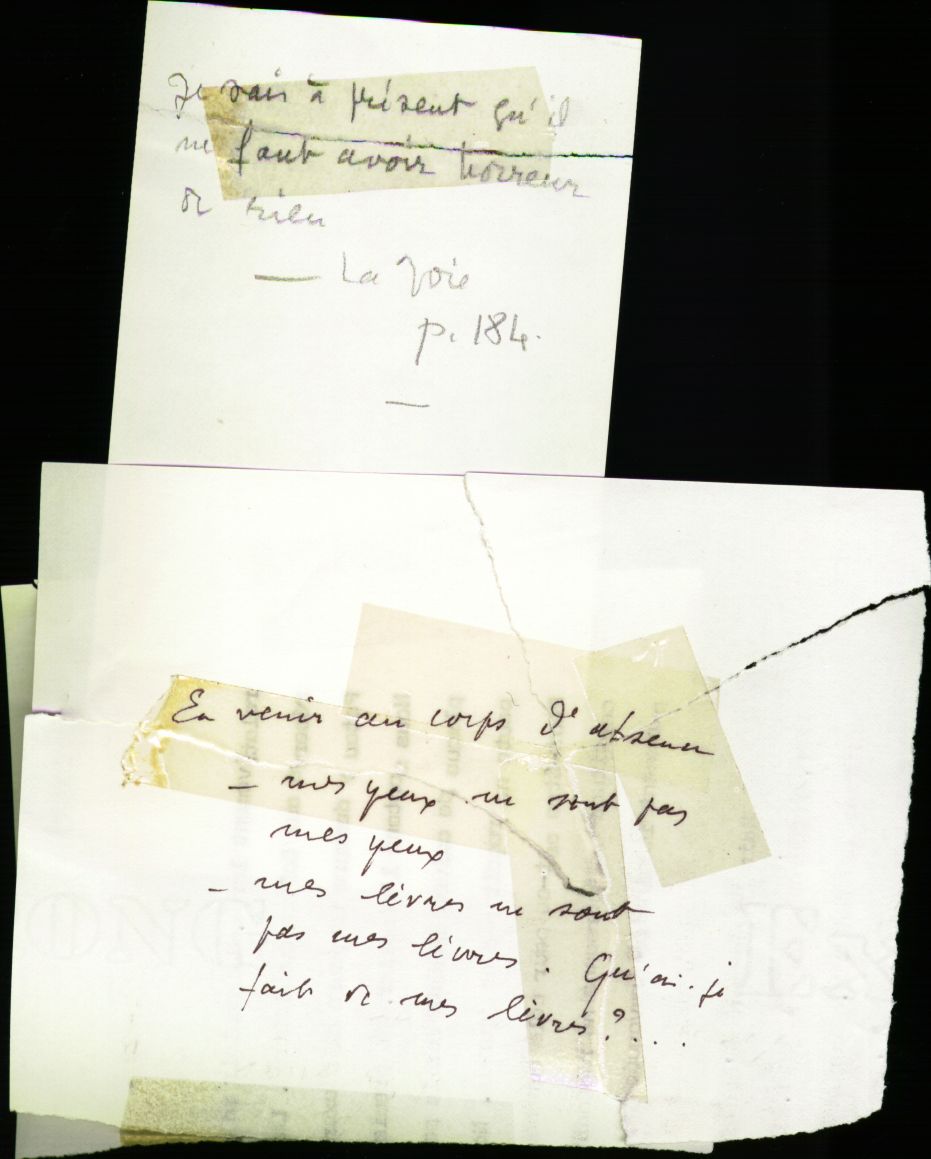 Je sais à présent qu'il
ne faut avoir horreur
de rien
— La Joie
p. 184.
—
En venir au corps d'absence
– mes yeux ne sont pas
mes yeux
– mes lèvres ne sont
pas mes lèvres. Qu'ai-je
fait de mes lèvres ?...